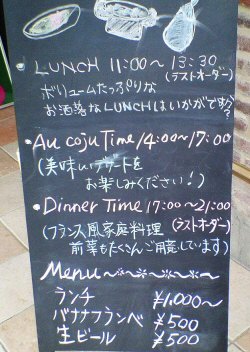 ・LUNCH 11:00〜13:30
(ラストオーダー)
ボリュームたっぷりな
お洒落なLUNCHはいかがですか?
・Au coju Time 14:00〜17:00
(美味しいデザートを
お楽しみください!)
・Dinner Time 17:00〜21:00
(ラストオーダー)
(フランス風家庭料理
前菜もたくさんご用意しています)
Menu〜※〜※〜※〜※〜
ランチ ¥1,000〜
バナナフランベ ¥500
生ビール ¥500